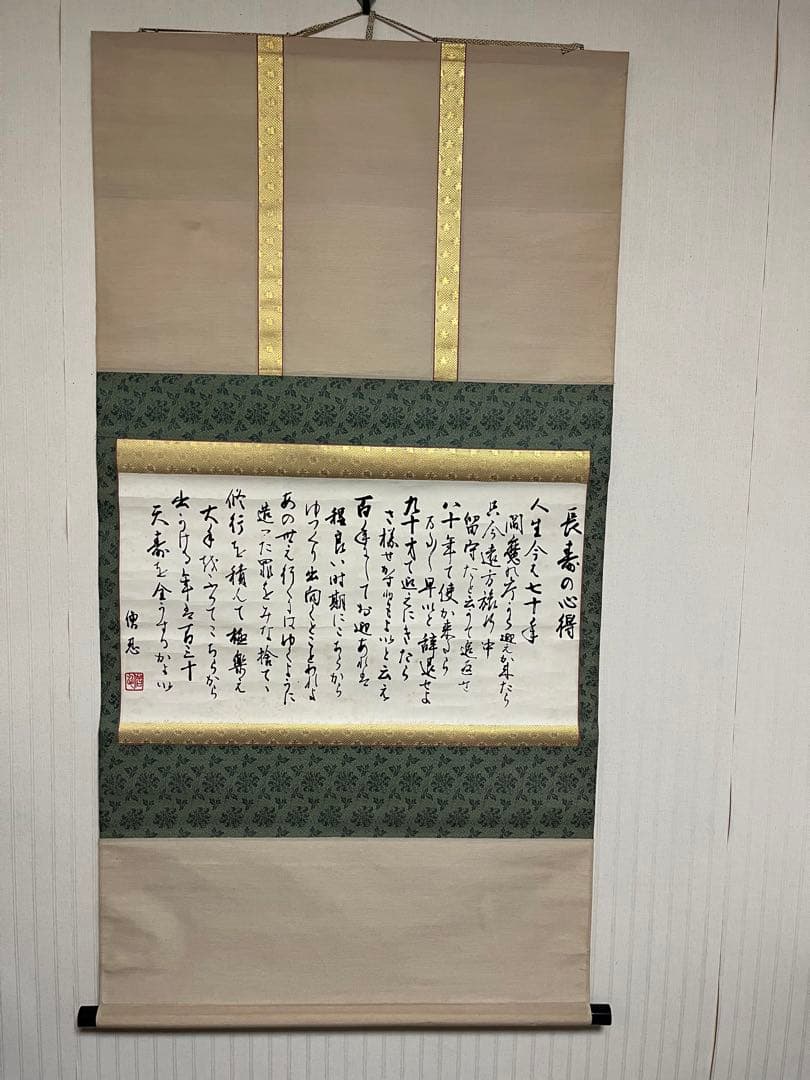 長寿の心得
人生今は七十年
閻魔の庁から迎えが来たら
只今遠方旅行中
留守だと云うて追返せ
八十年で使が来たら
まだ早いと辞退せよ
九十才で迎えにきたら
さ様せかずともよいと云え
百年して お迎あれば
程良い時期にこちらから
ゆっくり出向くとことわれよ
あの世え行くにはゆくように
造った罪をみな捨て、
修行を積んで極楽え
大手をふってこちらから
出かける年は百三十
天寿を全うするがよい